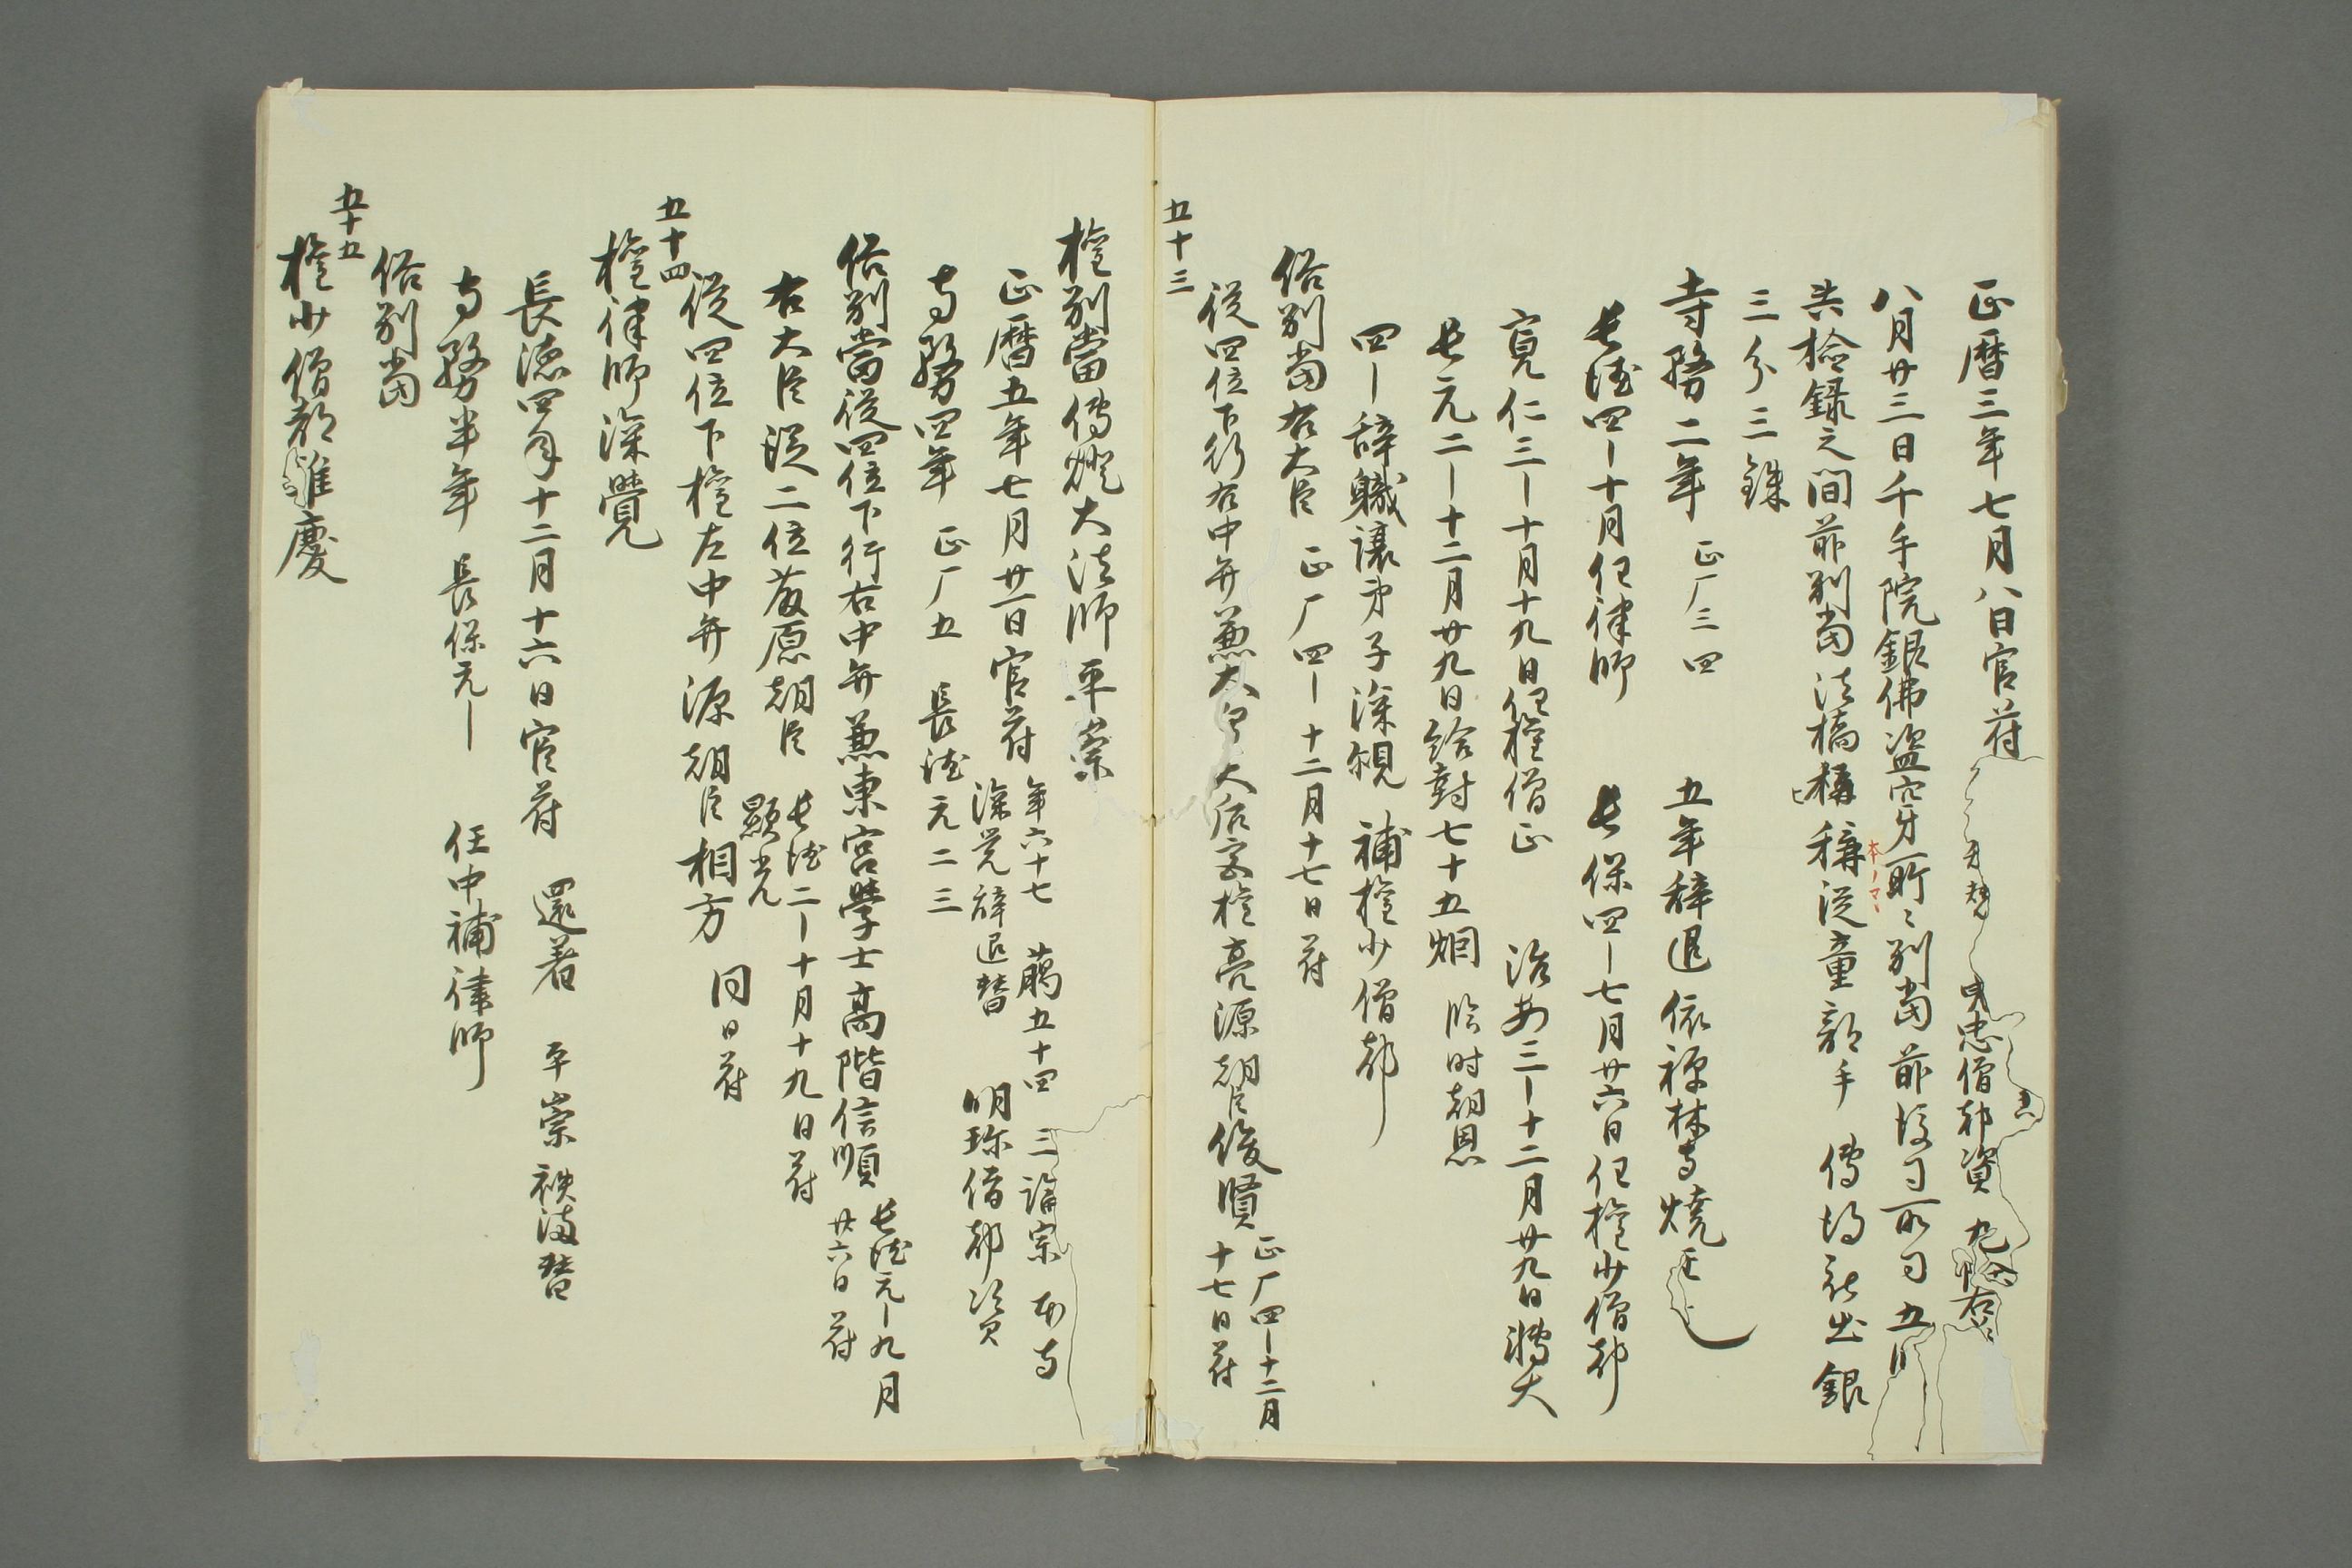 正暦三年七月八日官苻
八月廿三日千手院銀佛盗 別當前後司所司五
共檢録之間前別當法橋 稱從童部手 銀
本ノマヽ
三分三銖
寺務二年 正厂三四 五年辞退依禅林寺焼亡也
長徳四ー十月任律師 長保四ー七月廿六日任権少僧都
寛仁三ー十月十九日任権僧正 治安三ー十二月廿九日轉大
長元二ー十二月廿九日給封七十五烟 臨時朝恩
四ー辞職讓弟子深観補権少僧都
俗別當右大臣 正厂四ー十二月十七日苻
從四位下行右中弁兼大皇大后宮権亮源朝臣俊賢 正厂四ー十二月
十七日苻
五十三
権別當傳燈大法師平崇
正暦五年七月廿一日官苻 年六十七 﨟五十四 三論宗 本寺
深覚辞退替 明珍僧都資
寺務四年 正厂五 長徳元二三
俗別當從四位下行右中弁兼東宮學士高階信順 長徳元ー九月
廿六日苻
右大臣從二位藤原朝臣 長徳二ー十月十九日苻
顯光
從四位下権左中弁源朝臣相方 同日苻
五十四
権律師深覺
長徳四年十二月十六日官苻 還着 平崇秩滿替
寺務半年 長保元ー 任中補律師
俗別當
五十五
権少僧都雅慶